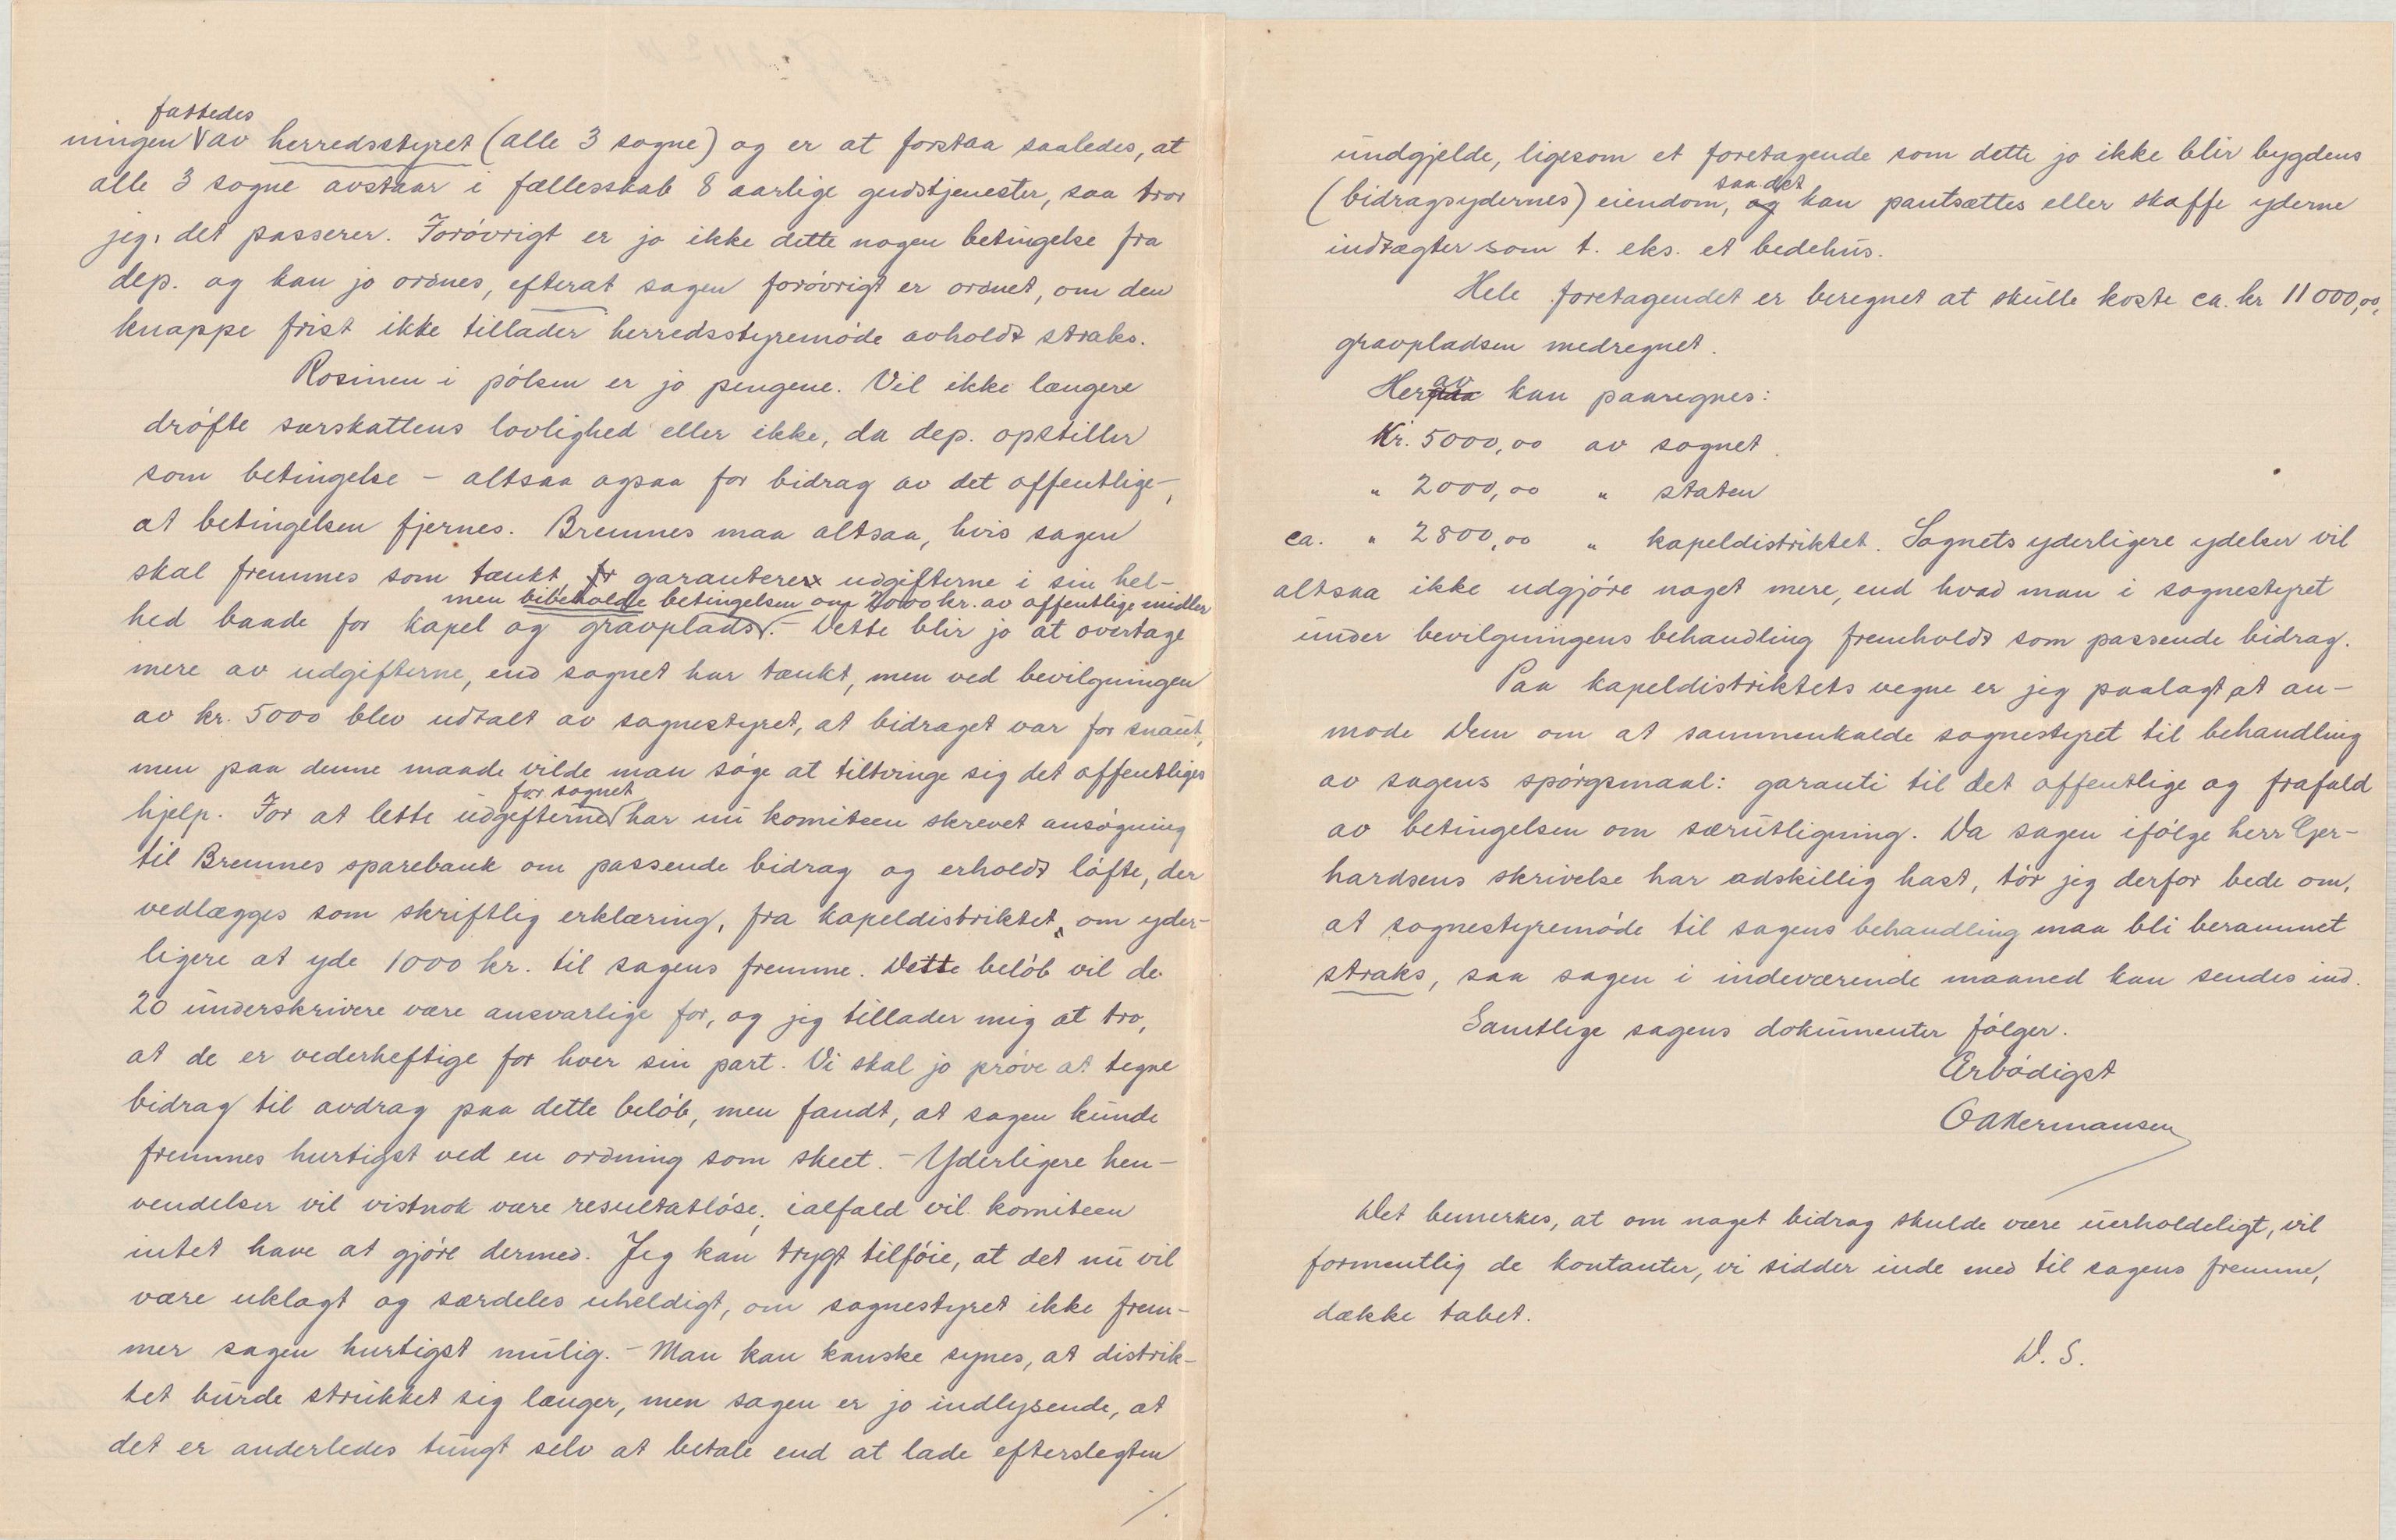 fattedes
ningen av herredsstyret (alle 3 sogne) og er at forstaa saaledes, at
alle 3 sogne avstaar i fællesskab 8 aarlige gudstjenester, saa tror
jeg, det passerer. Forøvrigt er jo ikke dette nogen betingelse fra
dep. og kan jo ordnes, efterat sagen forøvrigt er ordnet, om den
knappe frist ikke tillader herredsstyremøde avholdt straks.
Rosinen i pølsen er jo pengene. Vil ikke længere
drøfte særskattens lovlighed eller ikke, da dep. opstiller
som betingelse - altsaa ogsaa for bidrag av det offentlige -,
at betingelsen fjernes. Bremnes maa altsaa, hvis sagen
skal fremmes som tænkt, garantere udgifterne i sin hel-
men bibeholde betingelsen om 2000 kr. av offentlige midler
hed baade for kapel og gravplads. - Dette blir jo at overtage
mere av udgifterne, end sognet har tænkt, men ved bevilgningen
av kr. 5000 blev udtalt av sognestyret, at bidraget var for snaut,
men paa denne maade vilde man søge at tiltvinge sig det offentliges
for sognet
hjelp. For at lette udgifterne har nu komiteen skrevet ansøgning
til Bremnes sparebank om passende bidrag og erholdt løfte, der
vedlægges som skriftlig erklæring, fra kapeldistriktet, om yder-
ligere at yde 1000 kr. til sagens fremme. Dette beløb vil de
20 underskrivere være ansvarlige for, og jeg tillader mig at tro,
at de er vederheftige for hver sin part. Vi skal jo prøve at tegne
bidrag til avdrag paa dette beløb, men fandt, at sagen kunde
fremmes hurtigst ved en ordning som skeet. - Yderligere hen-
vendelser vil vistnok være resultatløse; ialfald vil komiteen
intet have at gjøre dermed. Jeg kan trygt tilføie, at det nu vil
være uklogt og særdeles uheldigt, om sognestyret ikke frem-
mer sagen hurtigst mulig. - Man kan kanske synes, at distrik-
tet burde strukket sig længer, men sagen er jo indlysende, at
det er anderledes tungt selv at betale end at lade efterslegten
./.
undgjelde, ligesom et foretagende som dette jo ikke blir bygdens
saa det
(bidragsydernes) eiendom, og kan pantsættes eller skaffe yderne
indtægter som t. eks. et bedehus.
Hele foretagendet er beregnet at skulle koste ca. kr 11 000,00,
gravpladsen medregnet.
Herav kan paaregnes:
Kr. 5000,00 av sognet.
" 2000,00 " staten
ca. " 2800,00 " kapeldistriktet. Sognets yderligere ydelser vil
altsaa ikke udgjøre noget mere, end hvad man i sognestyret
under bevilgningens behandling fremholdt som passende bidrag.
Paa kapeldistriktets vegne er jeg paalagt at an-
mode Dem om at sammenkalde sognestyret til behandling
av sagens spørgsmaal: garanti til det offentlige og frafald
av betingelsen om særutligning. Da sagen ifølge herr Gjer-
hardsens skrivelse har adskillig hast, tør jeg derfor bede om,
at sognestyremøde til sagens behandling maa bli berammet
straks, saa sagen i indeværende maaned kan sendes ind.
Samtlige sagens dokumenter følger.
Ærbødigst
O A Hermansen
Det bemerkes, at om noget bidrag skulde være uerholdeligt, vil
formentlig de kontanter, vi sidder inde med til sagens fremme,
dække tabet.
D. S.